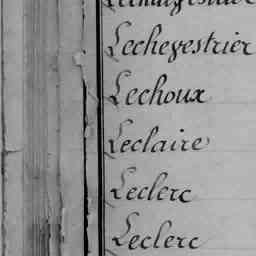 Lechevestrier
Lechoux
Leclaire
Leclerc
Leclerc